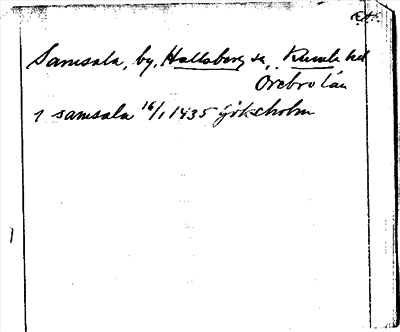 RA.
Samsala, by, Hallsberg sn, Kumla hd
Örebro län
i samsala 16/1 1435 Göksholm